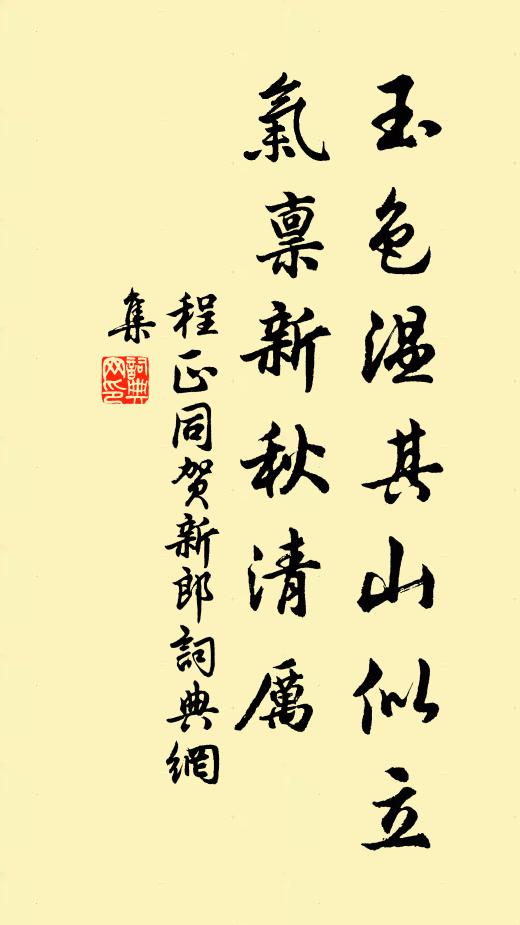 玉色温其山似立
氣禀新秋清厲
程正同賀新郎詞典網
集
詞典
网印